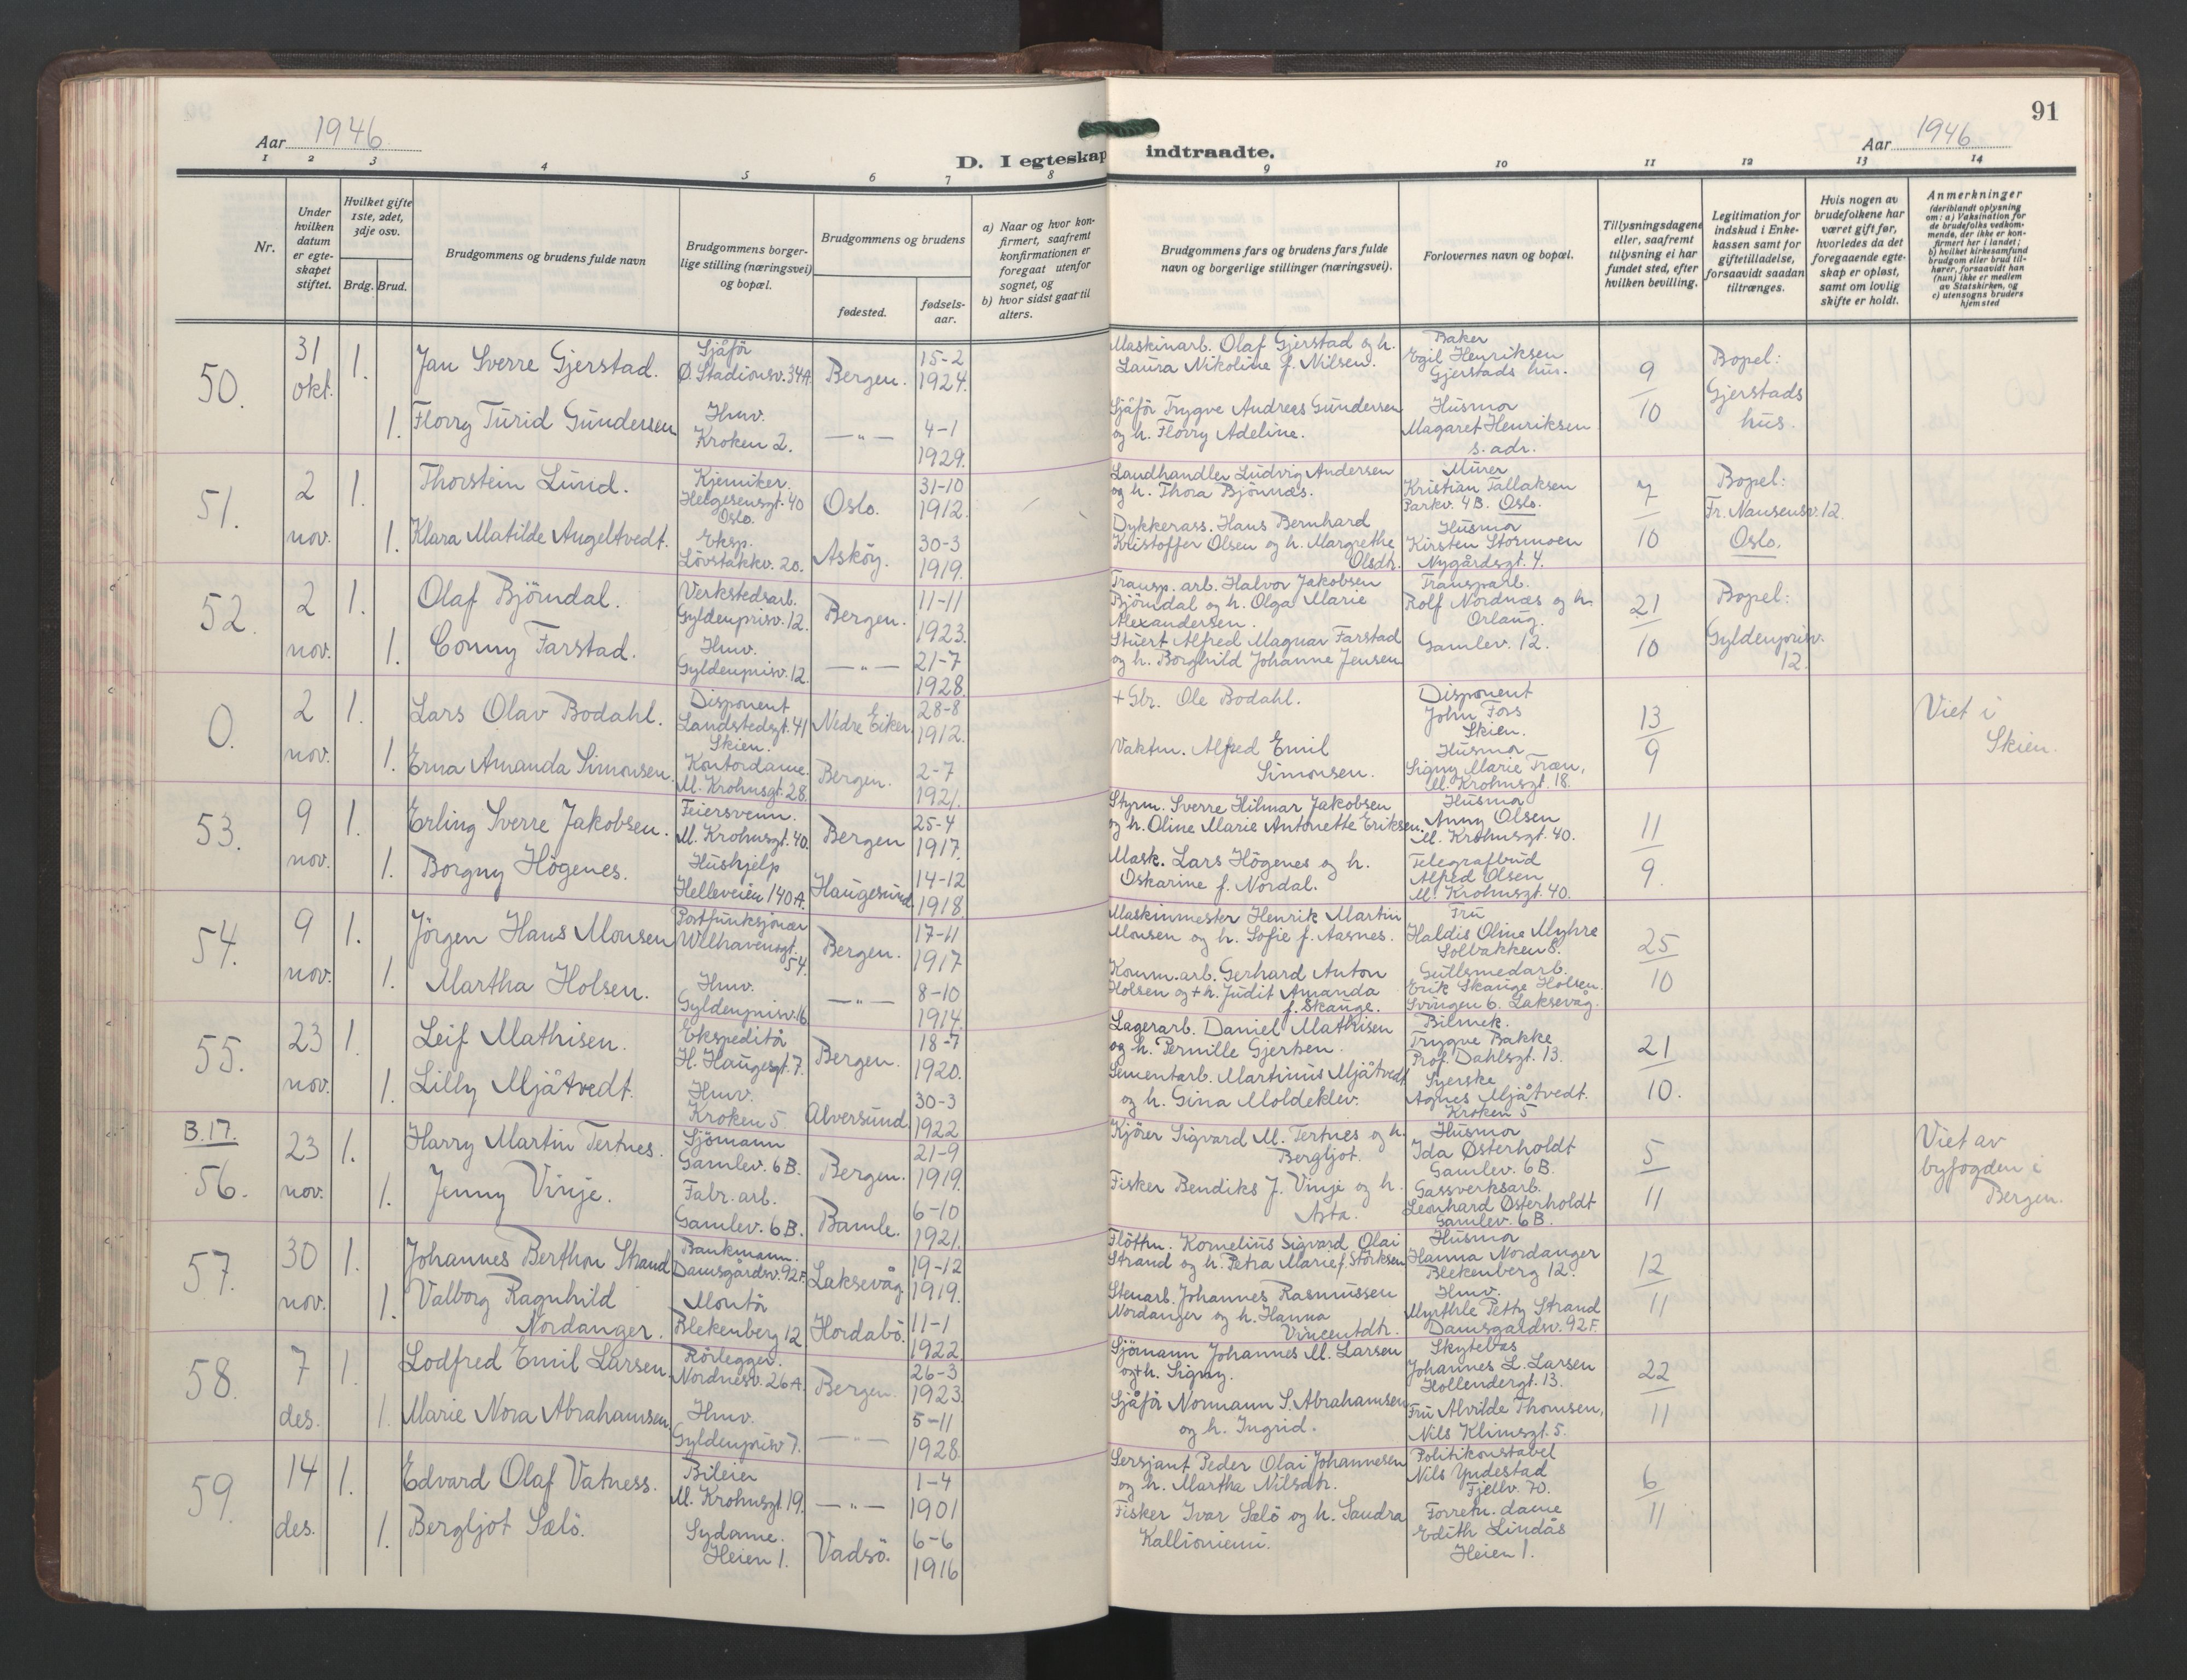 91
Aar 1946
D. I egteskap indtraadte.
Aar 1946
1 2 3 4 5 6 7 8 9 10 11 12 13 14
Nr.
Under hvilken datum er egteskapet stiftet.
Hvilket gifte 1ste, 2det, 3dje osv.
Brdg. Brud.
Brudgommens og brudens fulde navn
Brudgommens borgerlige stilling (næringsvei) og bopæl.
Brudgommens og brudens
fødested.
fødselsaar.
a) Naar og hvor konfirmert, saafremt konfirmationen er foregaat utenfor sognet, og
b) hvor sidst gaat til alters.
Brudgommens fars og brudens fars fulde navn og borgerlige stillinger (næringsvei).
Forlovernes navn og bopæl.
Tillysningsdagene eller, saafremt tillysning ei har fundet sted, efter hvilken bevilling.
Legitimation for indskud i Enkekassen samt for giftetilladelse, forsaavidt saadan tiltrænges.
Hvis nogen av brudefolkene har været gift før, hvorledes da det foregaaende egteskap er opløst, samt om lovlig skifte er holdt.
Anmerkninger (deriblandt oplysning om: a) Vaksination for de brudefolks vedkommende, der ikke er konfirmert her i landet; b) hvilket kirkesamfund brudgom eller brud tilhører, forsaavidt han (hun) ikke er medlem av Statskirken, og c) utensogns bruders hjemsted
50. 31 okt. 1. Jan Sverre Gjerstad. Sjåför Ø Stadionsv. 34A. Bergen. 15-2 1924. Maskinarb. Olaf Gjerstad og h. Laura Nikoline f. Nilsen. Baker Egil Henriksen Gjerstads hus. 9/10 Bopel: Gjerstads hus.
1. Florry Turid Gundersen Hmv. Kroken 2. —"— 4-1 1929. Sjåför Trygve Andreas Gundersen og h. Florry Adeline. Husmor Magaret Henriksen s. adr.
51. 2 nov. 1. Thorstein Lund. Kjemiker. Helgesensgt. 40 Oslo. Oslo. 31-10 1912. Landhandler Ludvig Andersen og h. Thora Bjönnæs. Murer Kristian Tallaksen Parkv. 4B. Oslo. 7/10 Bopel: Fr. Nansensv. 12. Oslo.
1. Klara Matilde Angeltvedt. Eksp. Lövstakkv. 20. Asköy. 30-3 1919. Dykkerass. Hans Bernhard Kristoffer Olsen og h. Margrethe Olsdtr. Husmor Kirsten Stormoen Nygårdsgt. 4.
52. 2 nov. 1. Olaf Björndal. Verkstedsarb. Gyldenprisv. 12. Bergen. 11-11 1923. Transp. arb. Halvor Jakobsen Björndal og h. Olga Marie Alexandersen. Transparb. Rolf Nordnæs og h. Orlaug. Gamlev. 12. 21/10 Bopel: Gyldenprisv. 12.
1. Conny Farstad. Hmv. Gyldenprisv. 12. —"— 21-7 1928. Stuert Alfred Magnar Farstad og h. Borghild Johanne Jensen
0. 2 nov. 1. Lars Olav Bodahl. Disponent Landstedsgt. 41 Skien. Nedre Eiker. 28-8 1912. + Gbr. Ole Bodahl. Disponent John Fors Skien. 13/9 Viet i Skien.
1. Erna Amanda Simonsen. Kontordame. M. Krohnsgt. 28. Bergen. 2-7 1921. Vaktm. Alfred Emil Simonsen. Husmor Signy Marie Træn, M. Krohnsgt. 18.
53. 9 nov. 1. Erling Sverre Jakobsen. Feiersvenn. M. Krohnsgt. 40. Bergen 25-4 1917. Styrm. Sverre Hilmar Jakobsen og h. Oline Marie Antonette Eriksen. Husmor Anny Olsen M. Krohnsgt. 40. 11/9.
1. Borgny Högenes. Hushjelp Helleveien 140A. Haugesund 14-12 1918. Mask. Lars Högenes og h. Oskarine f. Nordal. Telegrafbud Alfred Olsen M. Krohnsgt. 40.
54. 9 nov. 1. Jörgen Hans Monsen Postfunksjonær Welhavensgt. 54. Bergen. 17-11 1917. Maskinmester Henrik Martin Monsen og h. Sofie f. Aasnes. Fru Haldis Oline Myhre Solbakken 8. 25/10
1. Martha Holsen. Hmv. Gyldenprisv. 16 —"— 8-10 1914. Komm.arb. Gerhard Anton Holsen og + h. Judit Amanda f. Skauge. Gullsmedarb. Erik Skauge Holsen. Svingen 6. Laksevåg.
55. 23 nov. 1. Leif Mathisen. Ekspeditör H. Haugesgt. 7. Bergen. 18-7 1920. Lagerarb. Daniel Mathisen og h. Pernille Gjertsen. Bilmek. Trygve Bakke Prof. Dahlsgt. 13. 21/10.
1. Lilly Mjåtvedt. Hmv. Kroken 5. Alversund. 30-3 1922 Sementarb. Martinus Mjåtvedt og h. Gina Moldeklev. Syerske Agnes Mjåtvedt. Kroken 5
B.17. 56. 23 nov. 1. Harry Martin Tertnes. Sjömann Gamlev. 6B. Bergen. 21-9 1919. Kjörer Sigvard M. Tertnes og h. Bergljot. Husmor Ida Østerholdt Gamlev. 6B. 5/11 Viet av byfogden i Bergen.
1. Jenny Vinje. Fabr. arb. Gamlev. 6B. Bamle. 6-10 1921. Fisker Bendiks J. Vinje og h. Asta. Gassverksarb. Leonhard Østerholdt Gamlev. 6B.
57. 30 nov. 1. Johannes Berthon Strand Bankmann. Damsgårdsv. 92F. Laksevåg 19-12 1919. Flöttm. Kornelius Sigvard Olai Strand og h. Petra Marie f. Störksen Husmor Hanna Nordanger Blekenberg 12. 12/11
1. Valborg Ragnhild Nordanger. Montör Blekenberg 12 Hordabö. 11-1 1922 Stenarb. Johannes Rasmussen Nordanger og h. Hanna Vincentdtr. Hmv. Myrthle Petty Strand Damsgårdsv. 92F.
58. 7 des. 1. Lodfred Emil Larsen. Rörlegger. Nordnesv. 26A. Bergen. 26-3 1923. Sjömann Johannes M. Larsen og + h. Signy. Skytebas Johannes L. Larsen Hollendergt. 13. 22/11
1. Marie Nora Abrahamsen. Hmv. Gyldenprisv 7. —"— 5-11 1928. Sjåför Normann S. Abrahamsen og h. Ingrid. Fru Alvilde Thomsen, Nils Klimsgt. 5.
59. 14 des. 1. Edvard Olaf Vatness. Bileier M. Krohnsgt. 19. —"— 1-4 1901 Sersjant Peder Olai Johannesen og h. Martha Nilsdtr. Politikonstabel Nils Yndestad Fjellv. 70. 6/11
1. Bergljot Sælö. Sydame. Heien 1. Vadsö. 6-6 1916 Fisker Ivar Sælö og h. Sandra Kallioniemi. Forretn. dame Edith Lindås Heien 1.